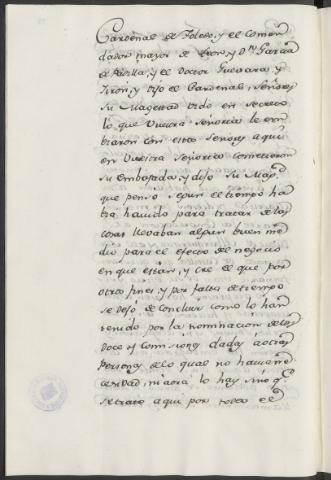 Cardenal de Toledo, y el Comen
dador mayor de Leon, y Dn. Garcia
de Padilla, y el Doctor Guevara, y
Giron, y dijo el Cardenal, Señores
Su Magestad oido en secreto
lo que Vuestra Señoria le em
biaron con estos Señores aqui
en Vuestra Señoria cometieron
su embajada, y dijo Su Magd.
que penso segun el tiempo ha
bia havido para tratar de las
cosas llevaban algun buen me
dio para el efecto del negocio
en que estan, y cree el que por
otros fines, y por falta de tiempo
se dejó de concluir como lo han
tenido por la nominacion de los
Doce y Comisiones dadas a ocias
Personas de lo qual no havia ne
cesidad, ni aora lo hay sino qe.
se trate aqui por todo el